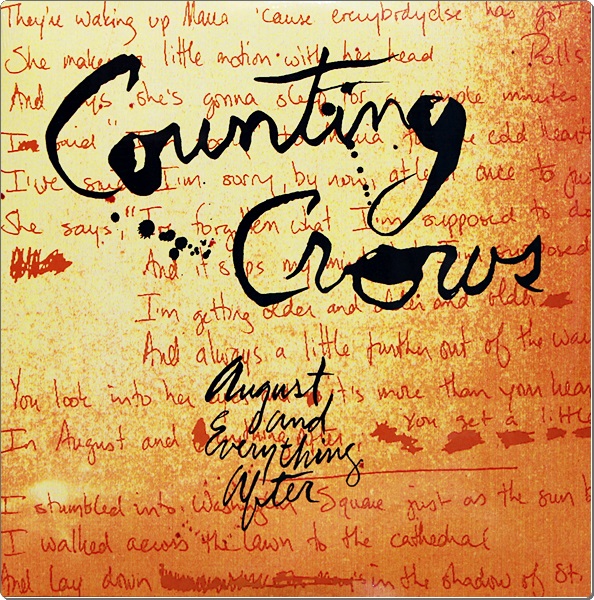 They're waking up Maria 'cause everybodyelse has got
She makes a little motion with her head Rolls
And says she's gonna sleep for a couple minutes
I said I to Maria for the cold heart
I've said I'm sorry by now, at least once to
She says, "I've forgotten what I'm supposed to do
And it slips my mind I'm supposed
I'm getting older and older and older
And always a little further out of the way
You look into her it's more than your hear
In August and everything after You get a little
I stumbled into Washington Square just as the sun b
I walked across the lawn to the cathedral
And lay down in the shadow of St.
Counting
Crows
August
and
Everything
After